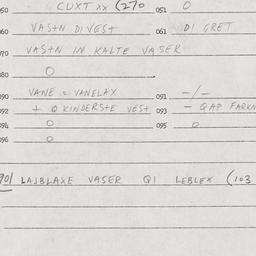 050 CUXT XX (270 051 O
060 VASTN DIVEST 061 DI GRET
070 VASTN IN KALTE VASER
080 O
090 VANE = VANELAX 091 -/-
092 + O KINDERSTE VEST 093 - QAP FARKN
094 O 095 O
096 O
901 LAJBLAXE VASER QI LEBLEX (103